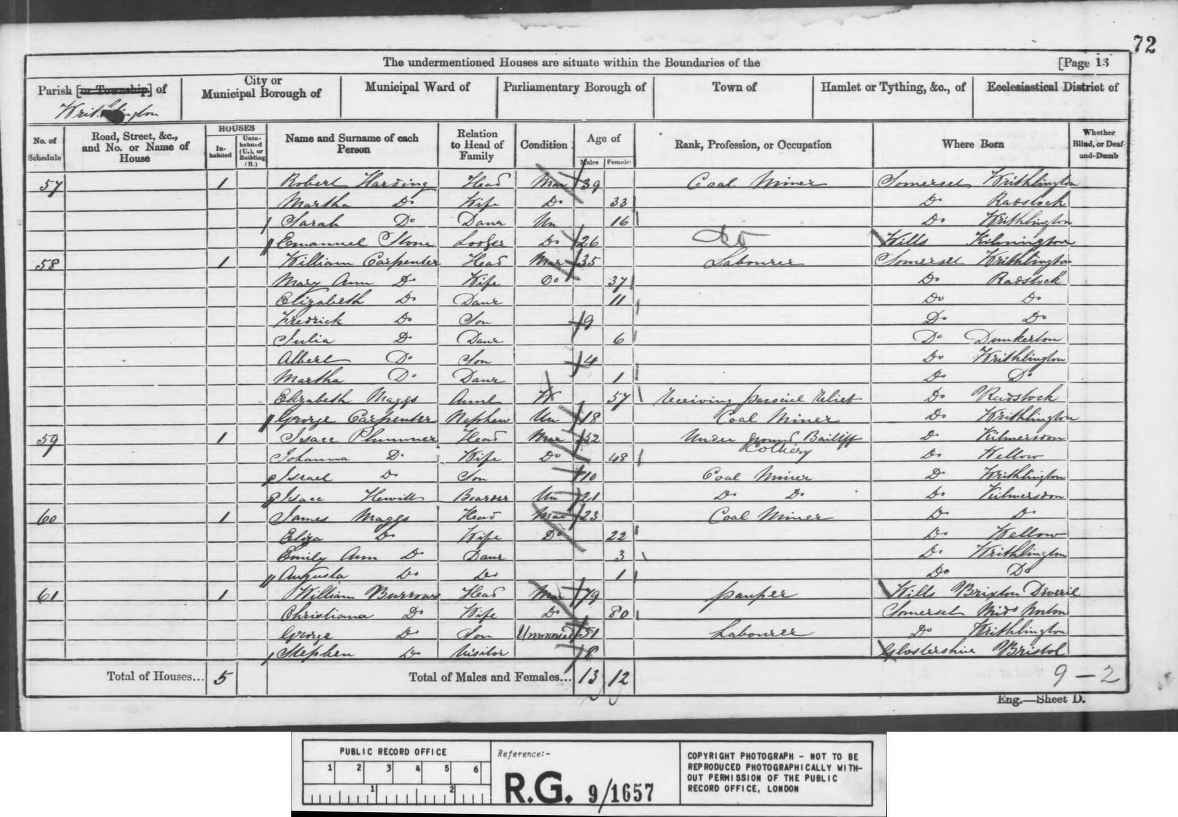 72
The undermentioned Houses are situate within the Boundaries of the [Page 13
Parish [or Township] of City or Municipal Borough of Municipal Ward of Parliamentary Borough of Town of Hamlet or Tything, &c., of Ecclesiastical District of
Writhlington
No. of Schedule Road, Street, &c., and No. or Name of House HOUSES Inhabited Uninhabited (U.), or Building (B.) Name and Surname of each Person Relation to Head of Family Condition Age of Males Females Rank, Profession, or Occupation Where Born Whether Blind, or Deaf-and-Dumb
57 1 Robert Harding Head Mar 39 Coal Miner Somerset Writhlington
Martha Do Wife Do 33 Do Radstock
Sarah Do Daur Un 16 Do Writhlington
Emanuel Stone Lodger Do 26 Do Wilts Kilmington
58 1 William Carpenter Head Mar 35 Labourer Somerset Writhlington
Mary Ann Do Wife Do 37 Do Radstock
Elizabeth Do Daur 11 Do Do
Fredrick Do Son 9 Do Do
Julia Do Daur 6 Do Dunkerton
Albert Do Son 4 Do Writhlington
Martha Do Daur 1 Do Do
Elizabeth Maggs Aunt W 57 Receiving parocial Relief Do Radstock
George Carpenter Nephew Un 18 Coal Miner Do Writhlington
59 1 Isaac Plummer Head Mar 52 Under ground Bailiff Colliery Do Kilmersdon
Johanna Do Wife Do 48 Do Wellow
Israel Do Son 10 Coal Miner Do Writhlington
Isaac Hewitt Boarder Un 21 Do Do Do Kilmersdon
60 1 James Maggs Head Mar 23 Coal Miner Do Do
Eliza Do Wife Do 22 Do Wellow
Emily Ann Do Daur 3 Do Writhlington
Augusta Do Do 1 Do Do
61 1 William Burrows Head Mar 79 pauper Wilts Brixton Deveril
Christiana Do Wife Do 80 Somerset Mids Norton
George Do Son Unmarried 51 Labourer Do Writhlington
Stephen Do Visitor 8 Glostershire Bristol
Total of Houses... 5 Total of Males and Females... 13 12 9-2
Eng.—Sheet D.
PUBLIC RECORD OFFICE
1 2 3 4 5 6
1 2
Reference:-
R.G. 9/1657
COPYRIGHT PHOTOGRAPH - NOT TO BE
REPRODUCED PHOTOGRAPHICALLY WITH-
OUT PERMISSION OF THE PUBLIC
RECORD OFFICE, LONDON